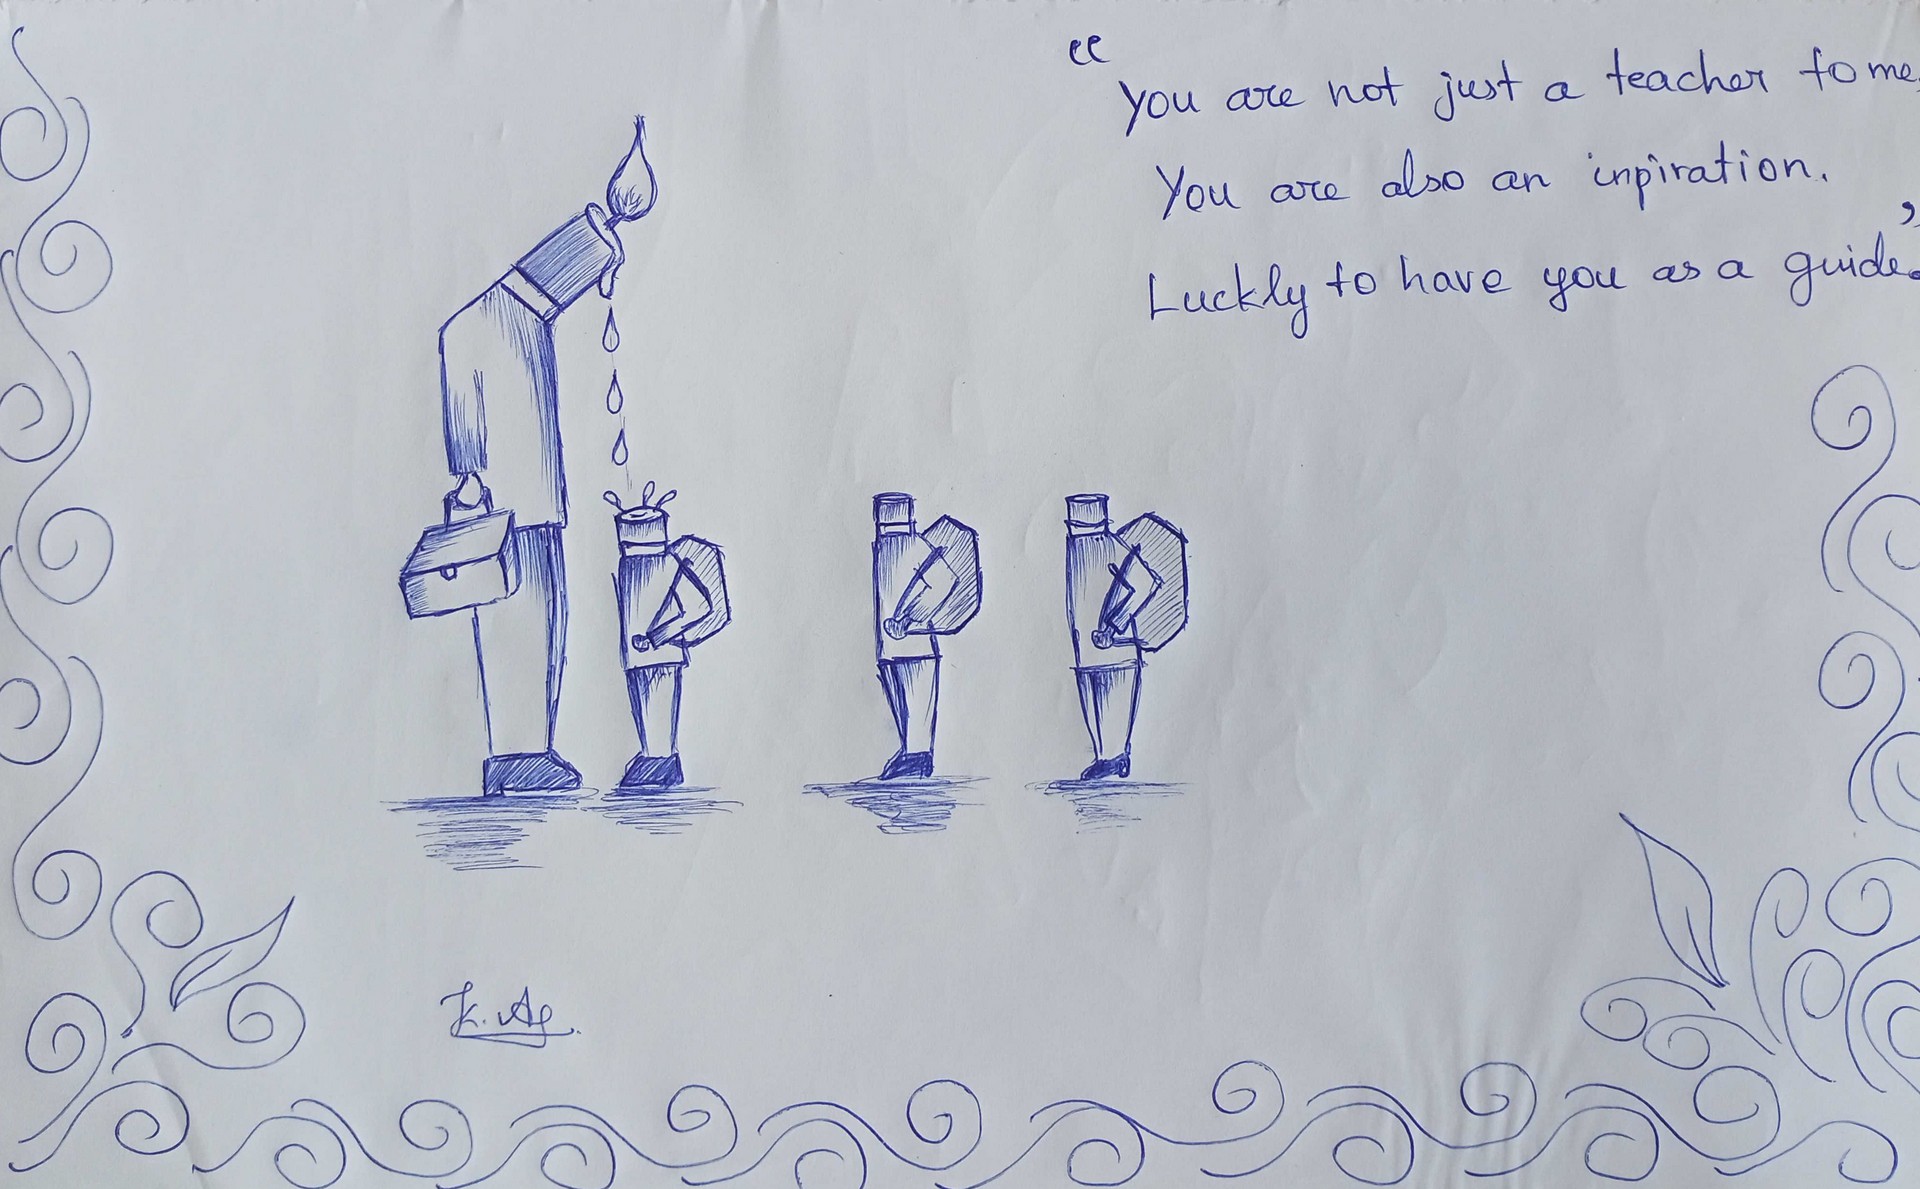 “
You are not just a teacher to me,
You are also an inpiration.
Luckly to have you as a guide.”